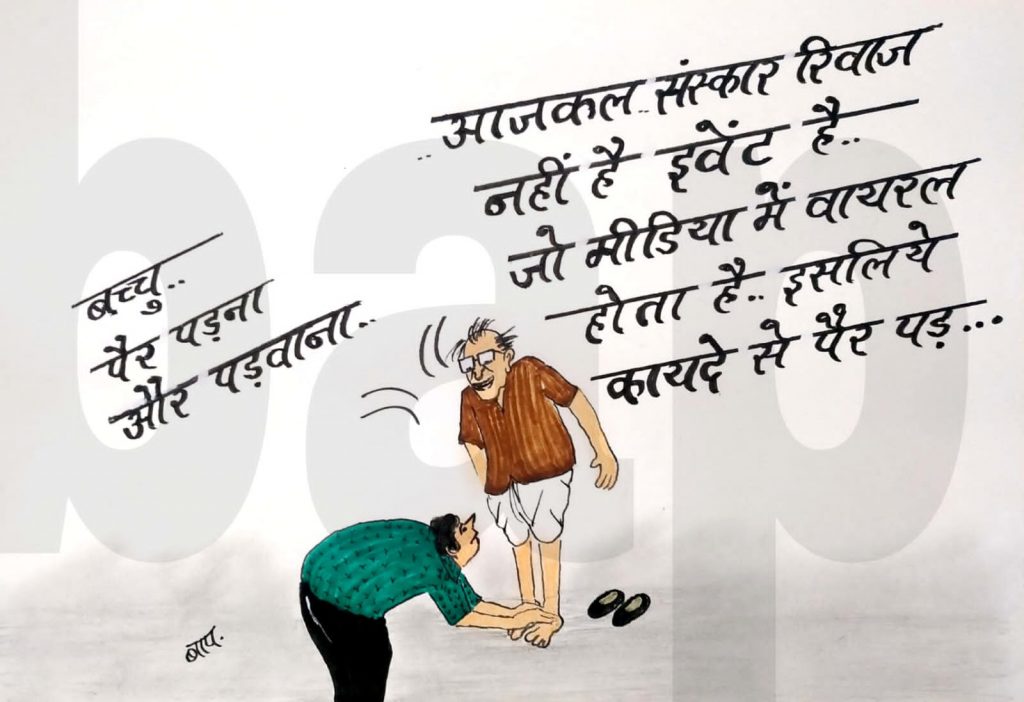 बच्चु..
पैर पड़ना
और पड़वाना..
.. आजकल.. संस्कार रिवाज
नहीं है इवेंट है..
जो मीडिया में वायरल
होता है.. इसलिये
कायदे से पैर पड़...
बाप.
bap